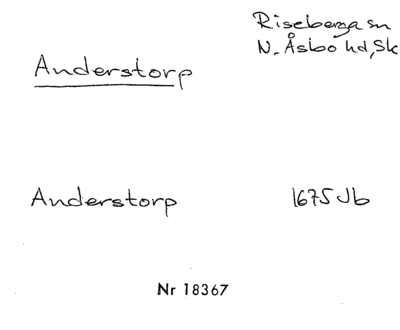 Riseberga sn
N. Åsbo hd, Sk
Anderstorp
Anderstorp 1675 Jb
Nr 18367